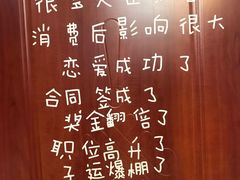 很多人在
消费后影响很大
恋爱成功了
合同签成了
奖金翻倍了
职位高升了
运爆棚了